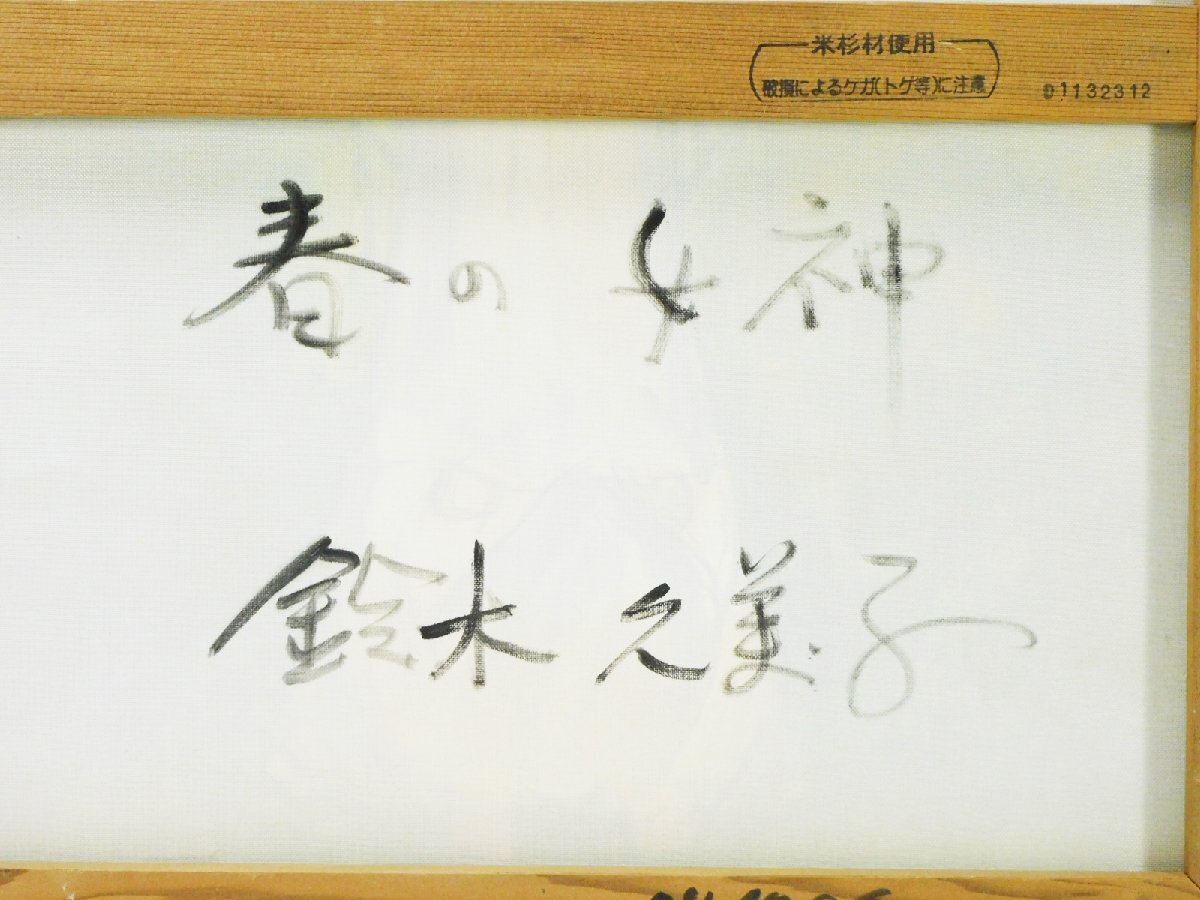 米杉材使用
破損によるケガ(トゲ等)に注意
01132312
春の女神
鈴木久美子